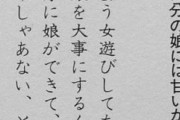 分の娘には甘いか
う女遊びして
を大事にする
に娘ができて、
じゃあない、